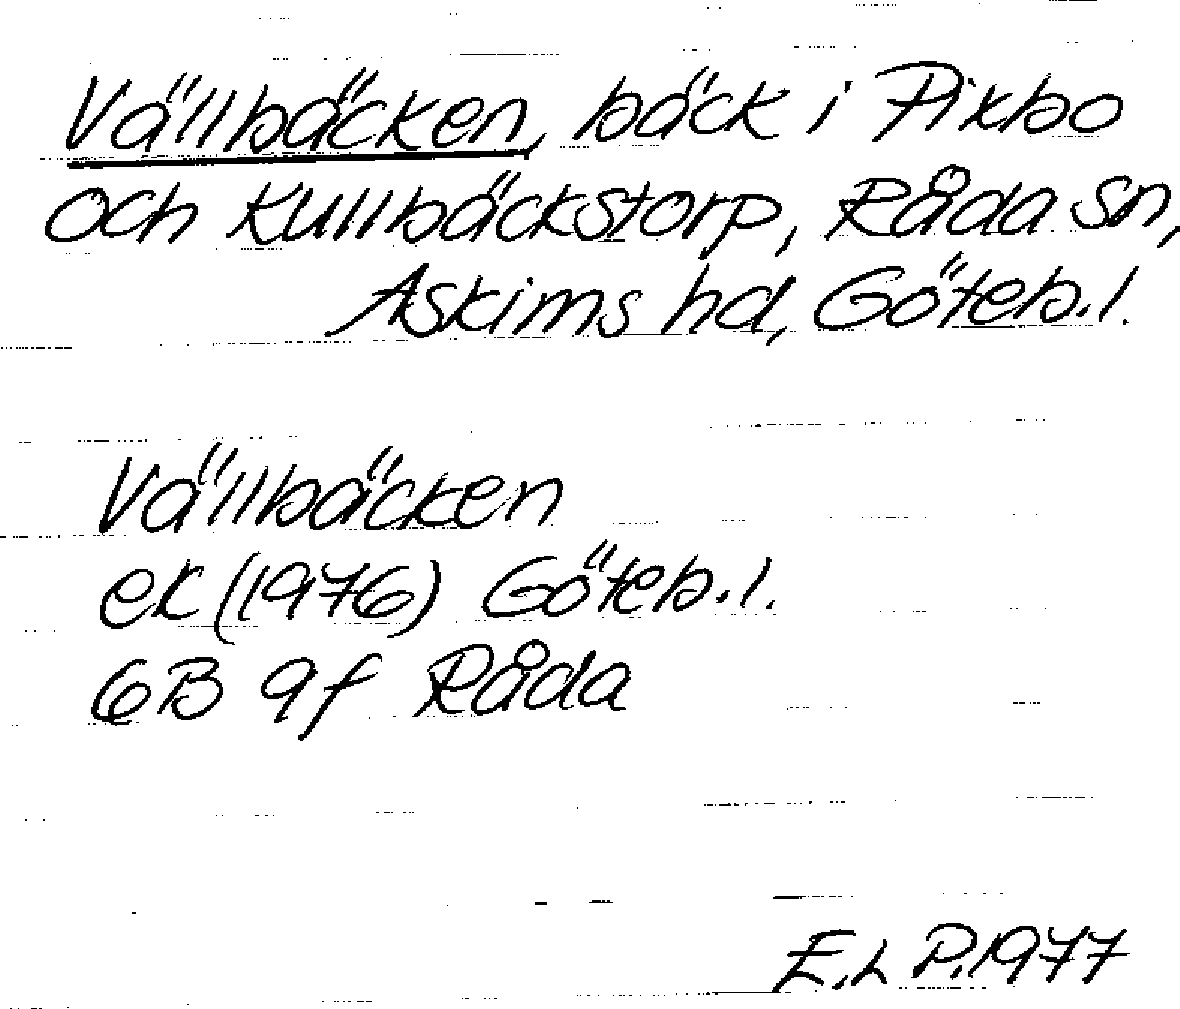 Vällbäcken, bäck i Pixbo
och Kullbäckstorp, Råda sn,
Askims hd, Göteb. l.
Vällbäcken
ek (1976) Göteb. l.
6B 9f Råda
E.L P. 1977